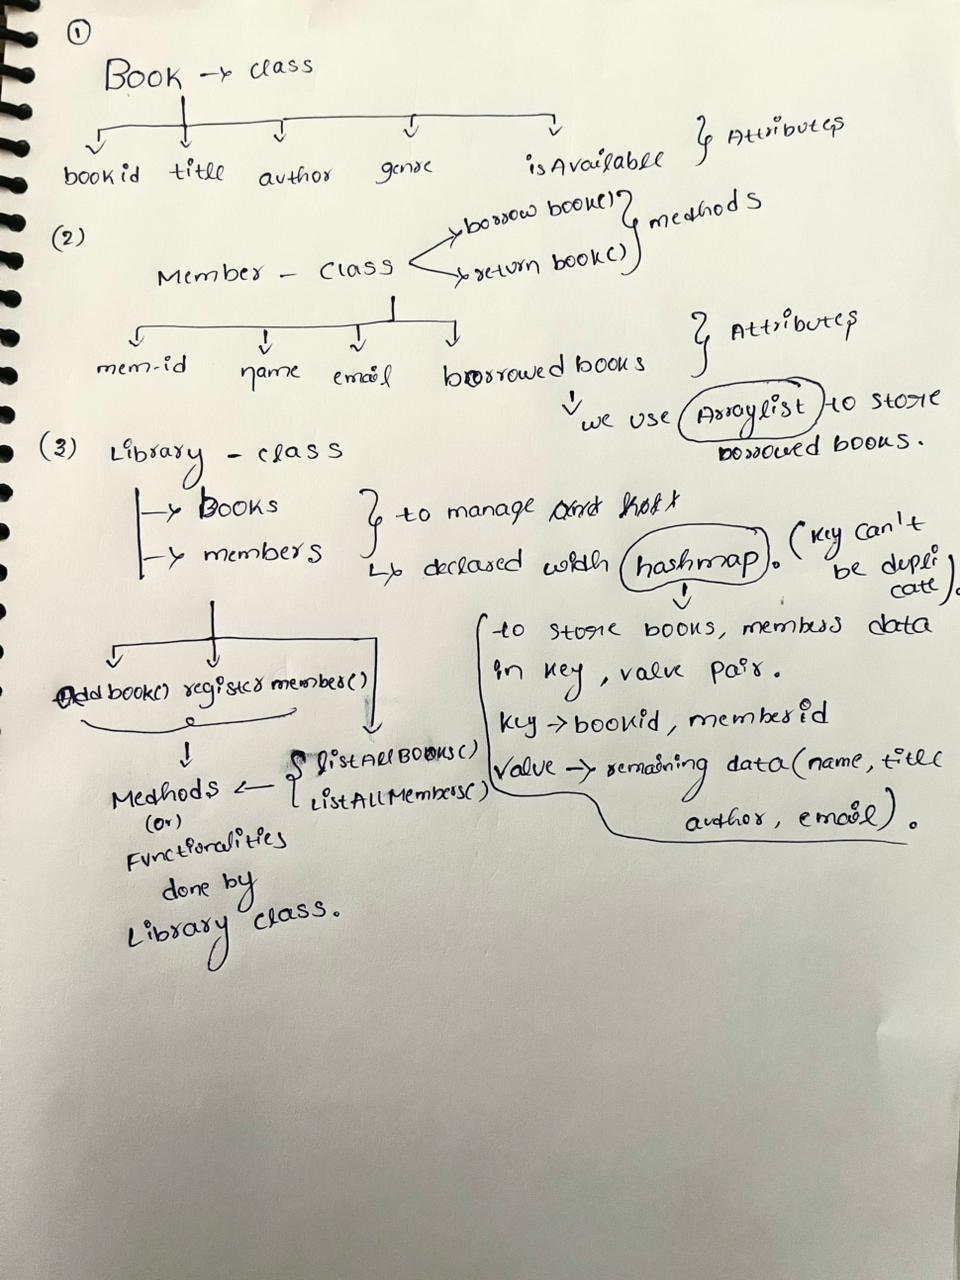 ①
Book → class
bookid title author genre isAvailable } Attributes
(2)
Member - class → borrow book() → return book() } methods
mem-id name email borrowed books } Attributes
↓ we use Arraylist to store borrowed books.
(3) Library - class
→ books
→ members
} to manage
↳ declared with hashmap. (key can't be duplicate).
to store books, members data
in key, value pair.
key → bookid, memberid
value → remaining data (name, title
author, email).
Addbook() register member()
{ listAllBooks()
ListAllMembers()
Methods ←
(or)
Functionalities
done by
Library class.